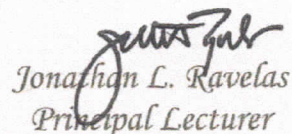 Jonathan L. Ravelas
Principal Lecturer